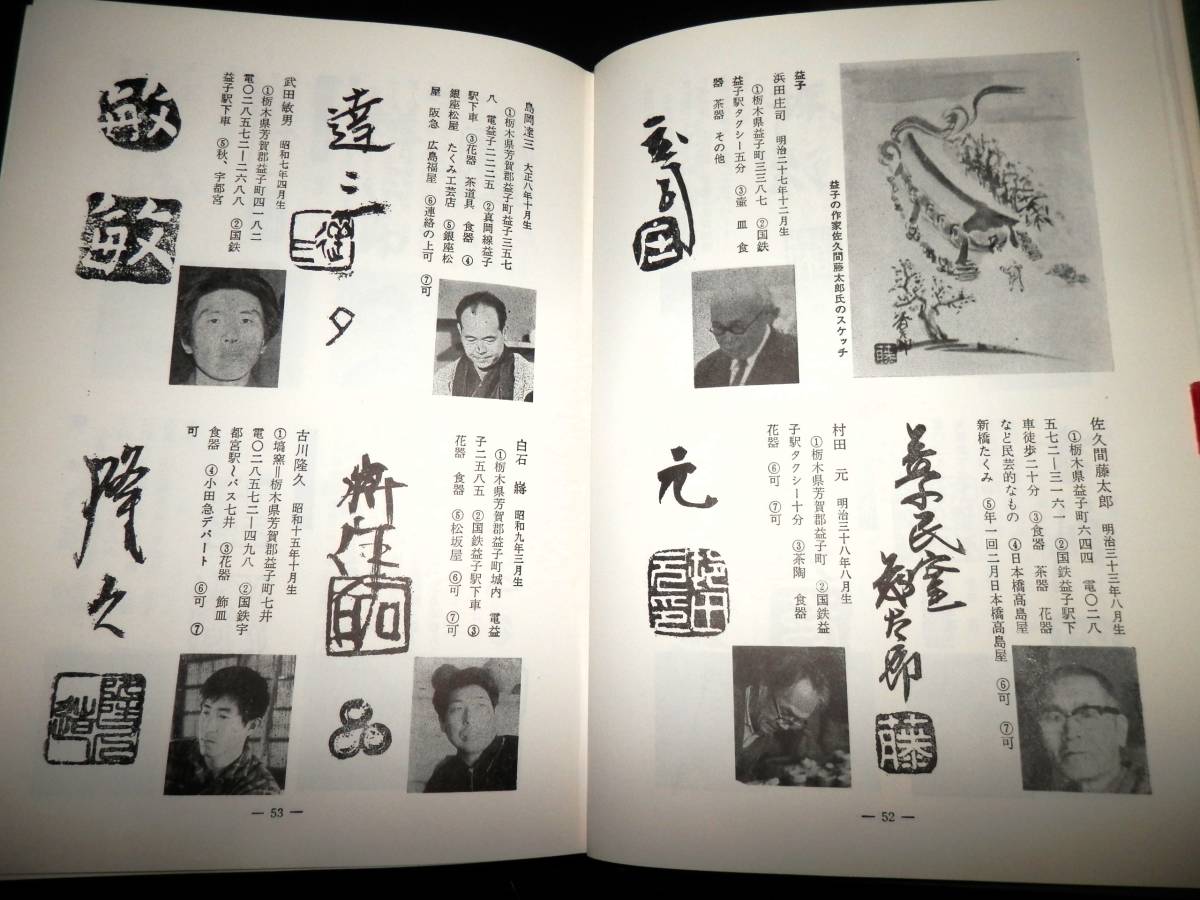 益子の作家佐久間藤太郎氏のスケッチ
益子
浜田庄司　明治二十七年十二月生
①栃木県益子町三三八七　②国鉄
益子駅タクシー五分　③壷　皿　食
器　茶器　その他
佐久間藤太郎　明治三十三年八月生
①栃木県益子町六四四　電〇二八
五七二―三一六一　②国鉄益子駅下
車徒歩二十分　③食器　茶器　花器
など民芸的なもの　④日本橋高島屋
新橋たくみ　⑤年一回二月日本橋高島屋　⑥可　⑦可
藤
村田　元　明治三十八年八月生
①栃木県芳賀郡益子町　②国鉄益
子駅タクシー十分　③茶陶　食器
花器　⑥可　⑦可
元
— 52 —
島岡達三　大正八年十月生
①栃木県芳賀郡益子町益子三五七
八　電益子二二二五　②真岡線益子
駅下車　③花器　茶道具　食器　④
銀座松屋　たくみ工芸店　⑤銀座松
屋　阪急　広島福屋　⑥連絡の上可　⑦可
達三
タ
武田敏男　昭和七年四月生
①栃木県芳賀郡益子町四一八二
電〇二八五七二―二六八八　②国鉄
益子駅下車　⑤秋、宇都宮
敏
敏
白石　　昭和九年三月生
①栃木県芳賀郡益子町城内　電益
子二五八五　②国鉄益子駅下車　③
花器　食器　⑤松坂屋　⑥可　⑦可
古川隆久　昭和十五年十月生
①塙窯＝栃木県芳賀郡益子町七井
電〇二八五七二―四九八　②国鉄宇
都宮駅〜バス七井　③花器　飾皿
食器　④小田急デパート　⑥可　⑦
可
隆久
— 53 —